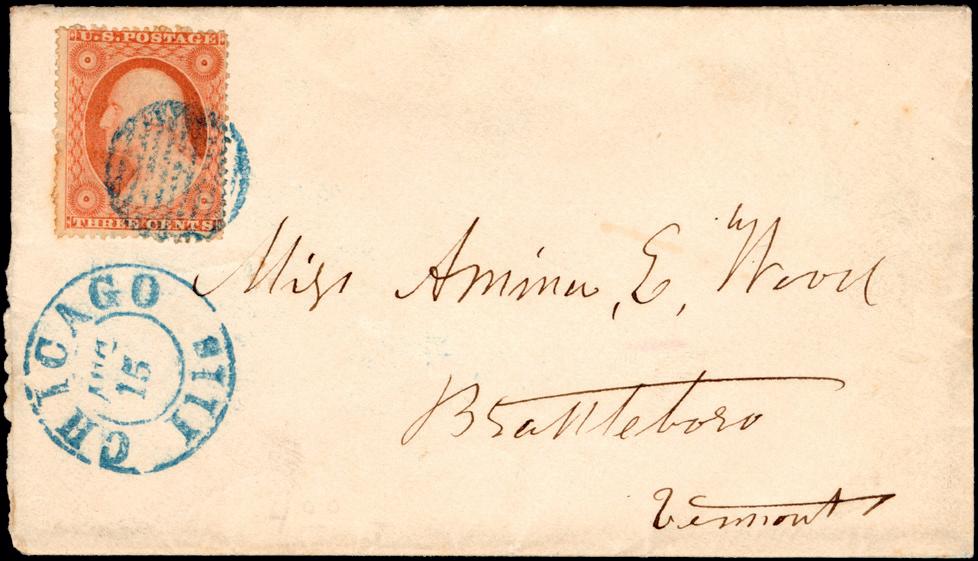 U.S. POSTAGE
THREE CENTS
CHICAGO Ill
AUG
15
Miss Amina, E, Wood
Brattleboro
Vermont